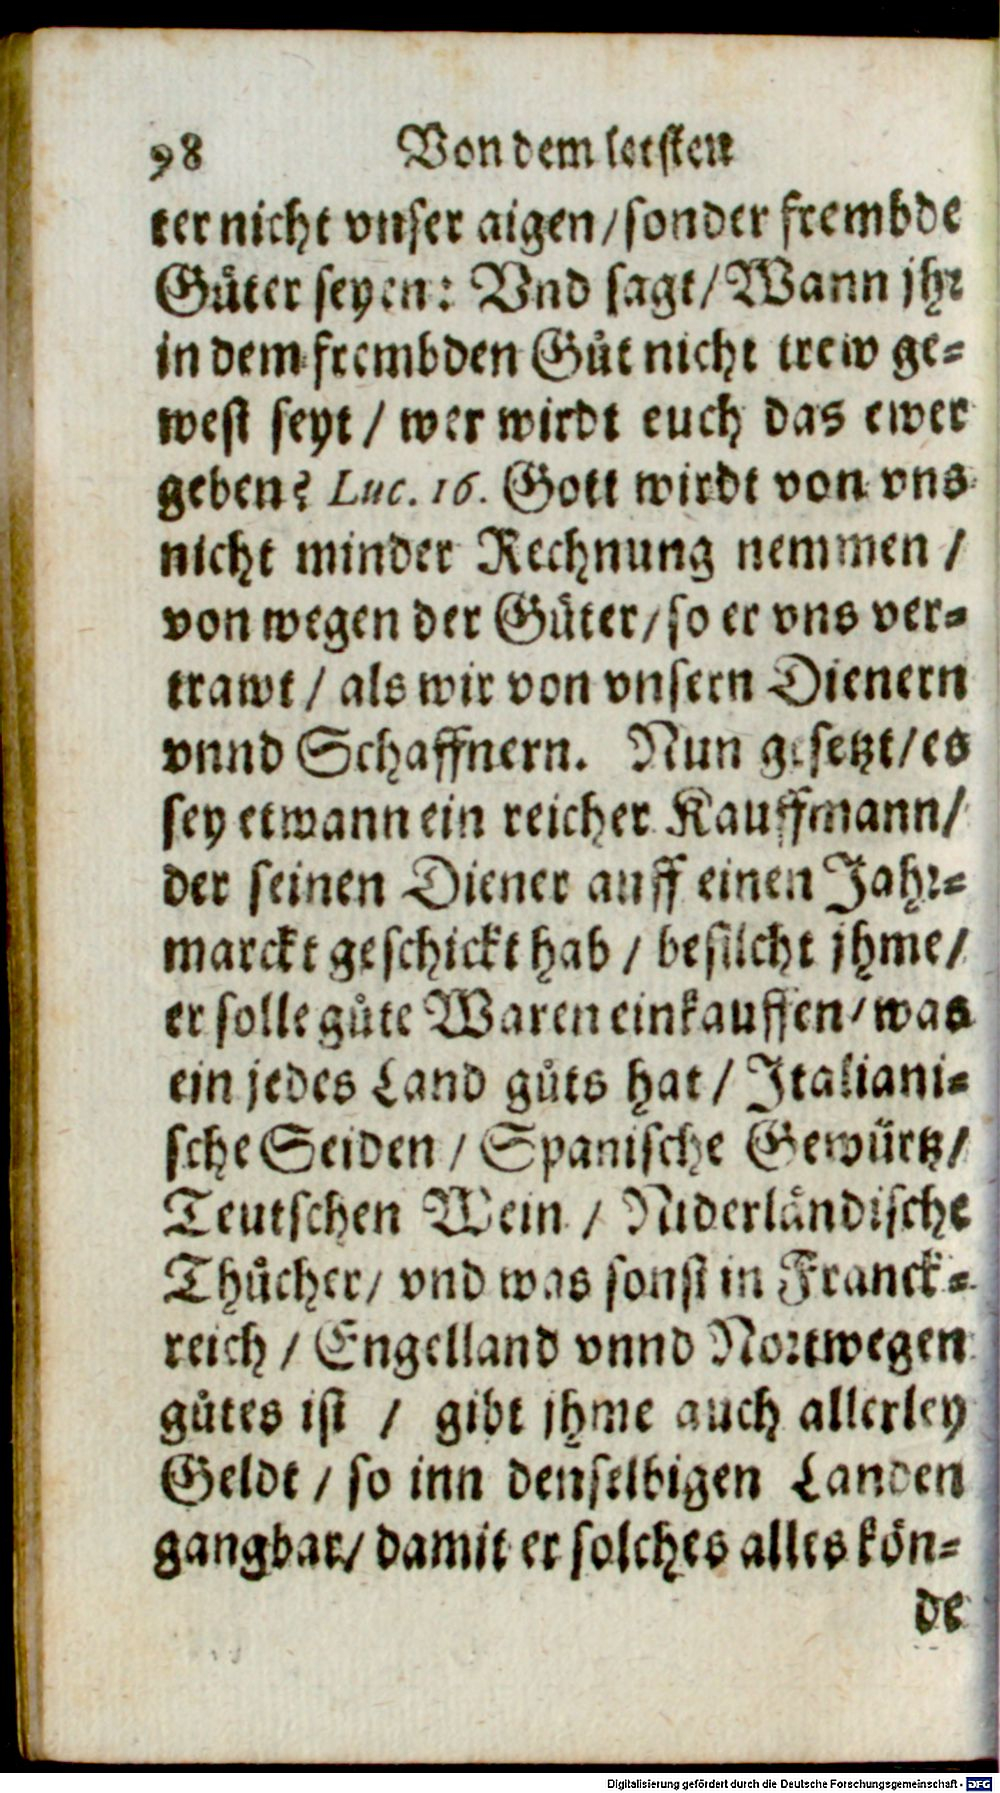 98 Von dem letsten
ter nicht vnser aigen / sonder frembde
Gůter seyen: Vnd sagt / Wann jhr
in dem frembden Gůt nicht trew ge-
west seyt / wer wirdt euch das ewer
geben? Luc. 16. Gott wirdt von vns
nicht minder Rechnung nemmen /
von wegen der Gůter / so er vns ver-
trawt / als wir von vnsern Dienern
vnnd Schaffnern. Nun gesetzt / es
sey etwann ein reicher Kauffmann /
der seinen Diener auff einen Jahr-
marckt geschickt hab / befilcht jhme /
er solle gůte Waren einkauffen / was
ein jedes Land gůts hat / Italiani-
sche Seiden / Spanische Gewürtz /
Teutschen Wein / Niderländische
Thůcher / vnd was sonst in Franck-
reich / Engelland vnnd Nortwegen
gůtes ist / gibt jhme auch allerley
Geldt / so inn denselbigen Landen
gangbar / damit er solches alles kön-
de
Digitalisierung gefördert durch die Deutsche Forschungsgemeinschaft - DFG